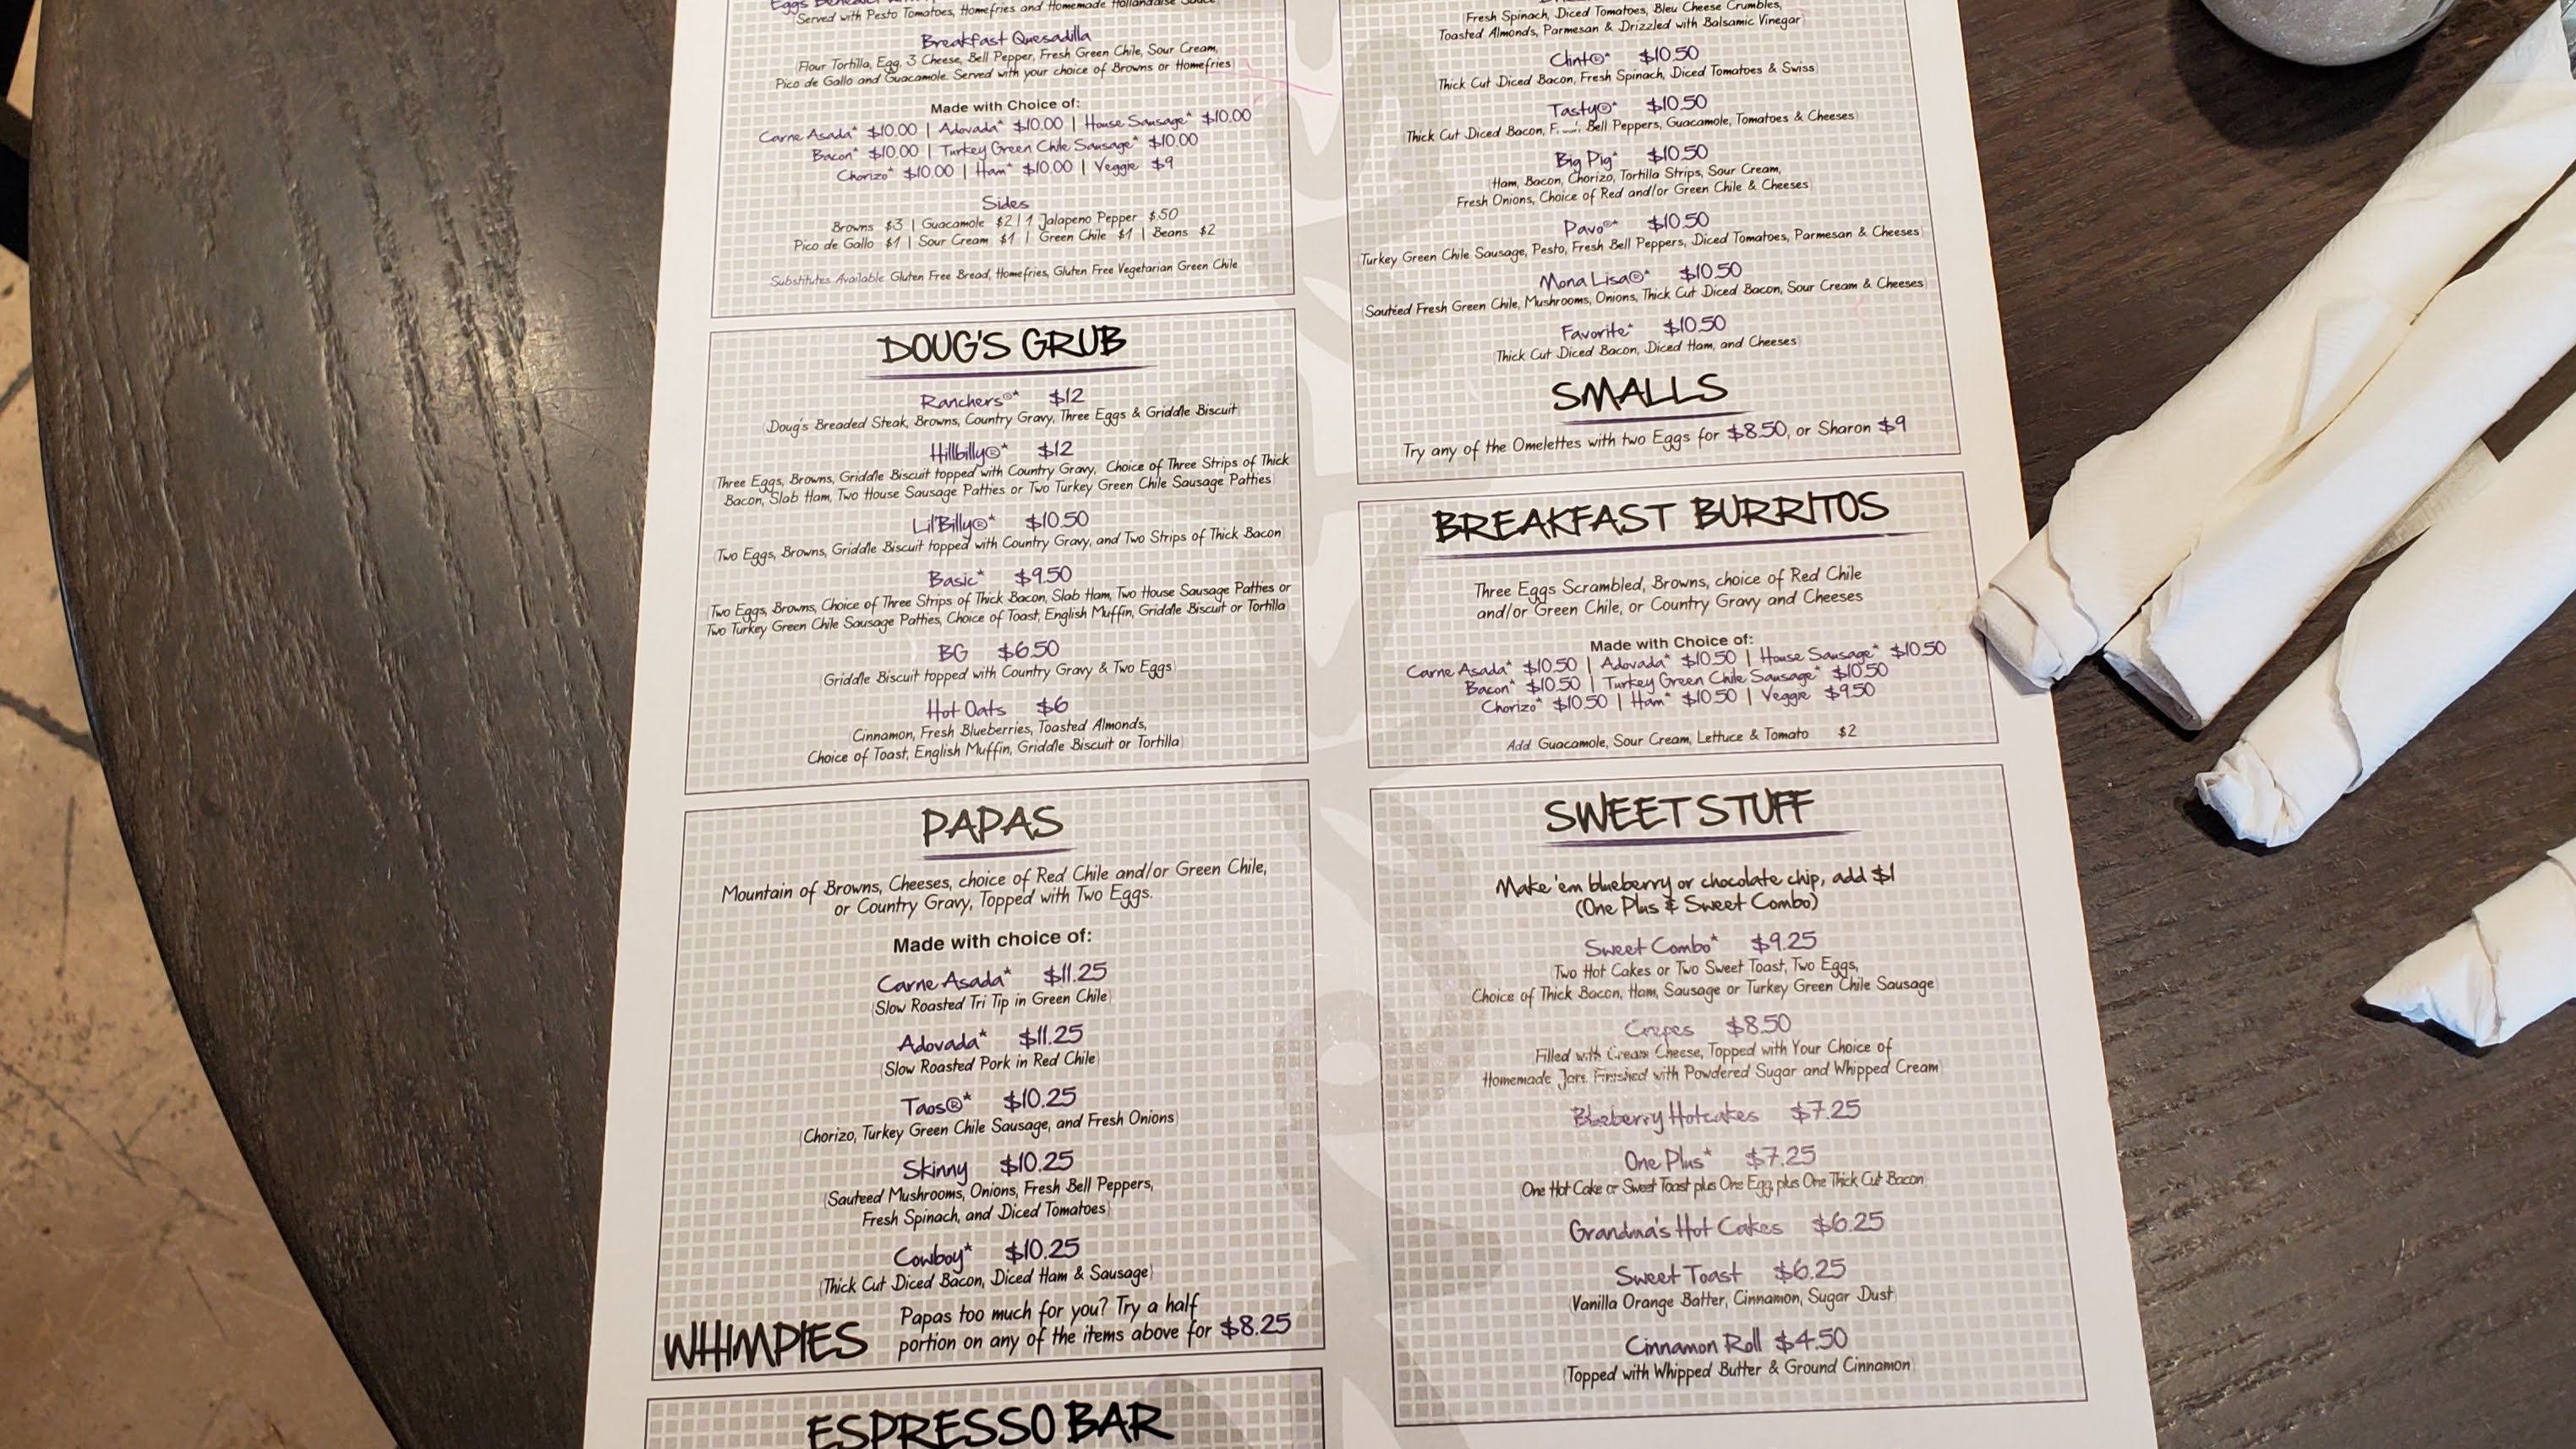 Served with Pesto Tomatoes, Homefries and Homemade Hollandaise Sauce
Breakfast Quesadilla
Flour Tortilla, Egg, 3 Cheese, Bell Pepper, Fresh Green Chile, Sour Cream,
Pico de Gallo and Guacamole. Served with your choice of Browns or Homefries
Made with Choice of:
Carne Asada* $10.00 | Adovada* $10.00 | House Sausage* $10.00
Bacon* $10.00 | Turkey Green Chile Sausage* $10.00
Chorizo* $10.00 | Ham* $10.00 | Veggie $9
Sides
Browns $3 | Guacamole $2 | 1 Jalapeno Pepper $.50
Pico de Gallo $1 | Sour Cream $1 | Green Chile $1 | Beans $2
Substitutes Available Gluten Free Bread, Homefries, Gluten Free Vegetarian Green Chile
DOUG'S GRUB
Ranchers®* $12
Doug's Breaded Steak, Browns, Country Gravy, Three Eggs & Griddle Biscuit
Hillbilly®* $12
Three Eggs, Browns, Griddle Biscuit topped with Country Gravy, Choice of Three Strips of Thick
Bacon, Slab Ham, Two House Sausage Patties or Two Turkey Green Chile Sausage Patties
Lil'Billy®* $10.50
(Two Eggs, Browns, Griddle Biscuit topped with Country Gravy, and Two Strips of Thick Bacon)
Basic* $9.50
Two Eggs, Browns, Choice of Three Strips of Thick Bacon, Slab Ham, Two House Sausage Patties or
Two Turkey Green Chile Sausage Patties, Choice of Toast, English Muffin, Griddle Biscuit or Tortilla
BG $6.50
Griddle Biscuit topped with Country Gravy & Two Eggs
Hot Oats $6
Cinnamon, Fresh Blueberries, Toasted Almonds,
Choice of Toast, English Muffin, Griddle Biscuit or Tortilla
PAPAS
Mountain of Browns, Cheeses, choice of Red Chile and/or Green Chile,
or Country Gravy, Topped with Two Eggs.
Made with choice of:
Carne Asada* $11.25
(Slow Roasted Tri Tip in Green Chile)
Adovada* $11.25
(Slow Roasted Pork in Red Chile)
Taos®* $10.25
(Chorizo, Turkey Green Chile Sausage, and Fresh Onions)
Skinny $10.25
(Sauteed Mushrooms, Onions, Fresh Bell Peppers,
Fresh Spinach, and Diced Tomatoes)
Cowboy* $10.25
(Thick Cut Diced Bacon, Diced Ham & Sausage)
WHIMPIES
Papas too much for you? Try a half
portion on any of the items above for $8.25
ESPRESSO BAR
Fresh Spinach, Diced Tomatoes, Bleu Cheese Crumbles,
Toasted Almonds, Parmesan & Drizzled with Balsamic Vinegar
Clint®* $10.50
Thick Cut Diced Bacon, Fresh Spinach, Diced Tomatoes & Swiss
Tasty®* $10.50
Thick Cut Diced Bacon, Bell Peppers, Guacamole, Tomatoes & Cheeses
Big Pig* $10.50
(Ham, Bacon, Chorizo, Tortilla Strips, Sour Cream,
Fresh Onions, Choice of Red and/or Green Chile & Cheeses)
Pavo®* $10.50
Turkey Green Chile Sausage, Pesto, Fresh Bell Peppers, Diced Tomatoes, Parmesan & Cheeses
Mona Lisa®* $10.50
(Sautéed Fresh Green Chile, Mushrooms, Onions, Thick Cut Diced Bacon, Sour Cream & Cheeses)
Favorite* $10.50
Thick Cut Diced Bacon, Diced Ham, and Cheeses
SMALLS
Try any of the Omelettes with two Eggs for $8.50, or Sharon $9
BREAKFAST BURRITOS
Three Eggs Scrambled, Browns, choice of Red Chile
and/or Green Chile, or Country Gravy and Cheeses
Made with Choice of:
Carne Asada* $10.50 | Adovada* $10.50 | House Sausage* $10.50
Bacon* $10.50 | Turkey Green Chile Sausage* $10.50
Chorizo* $10.50 | Ham* $10.50 | Veggie $9.50
Add Guacamole, Sour Cream, Lettuce & Tomato $2
SWEET STUFF
Make 'em blueberry or chocolate chip, add $1
(One Plus & Sweet Combo)
Sweet Combo* $9.25
Two Hot Cakes or Two Sweet Toast, Two Eggs,
Choice of Thick Bacon, Ham, Sausage or Turkey Green Chile Sausage
Crepes $8.50
Filled with Cream Cheese, Topped with Your Choice of
Homemade Jam. Finished with Powdered Sugar and Whipped Cream
Blueberry Hotcakes $7.25
One Plus* $7.25
One Hot Cake or Sweet Toast plus One Egg, plus One Thick Cut Bacon
Grandma's Hot Cakes $6.25
Sweet Toast $6.25
(Vanilla Orange Batter, Cinnamon, Sugar Dust)
Cinnamon Roll $4.50
(Topped with Whipped Butter & Ground Cinnamon)